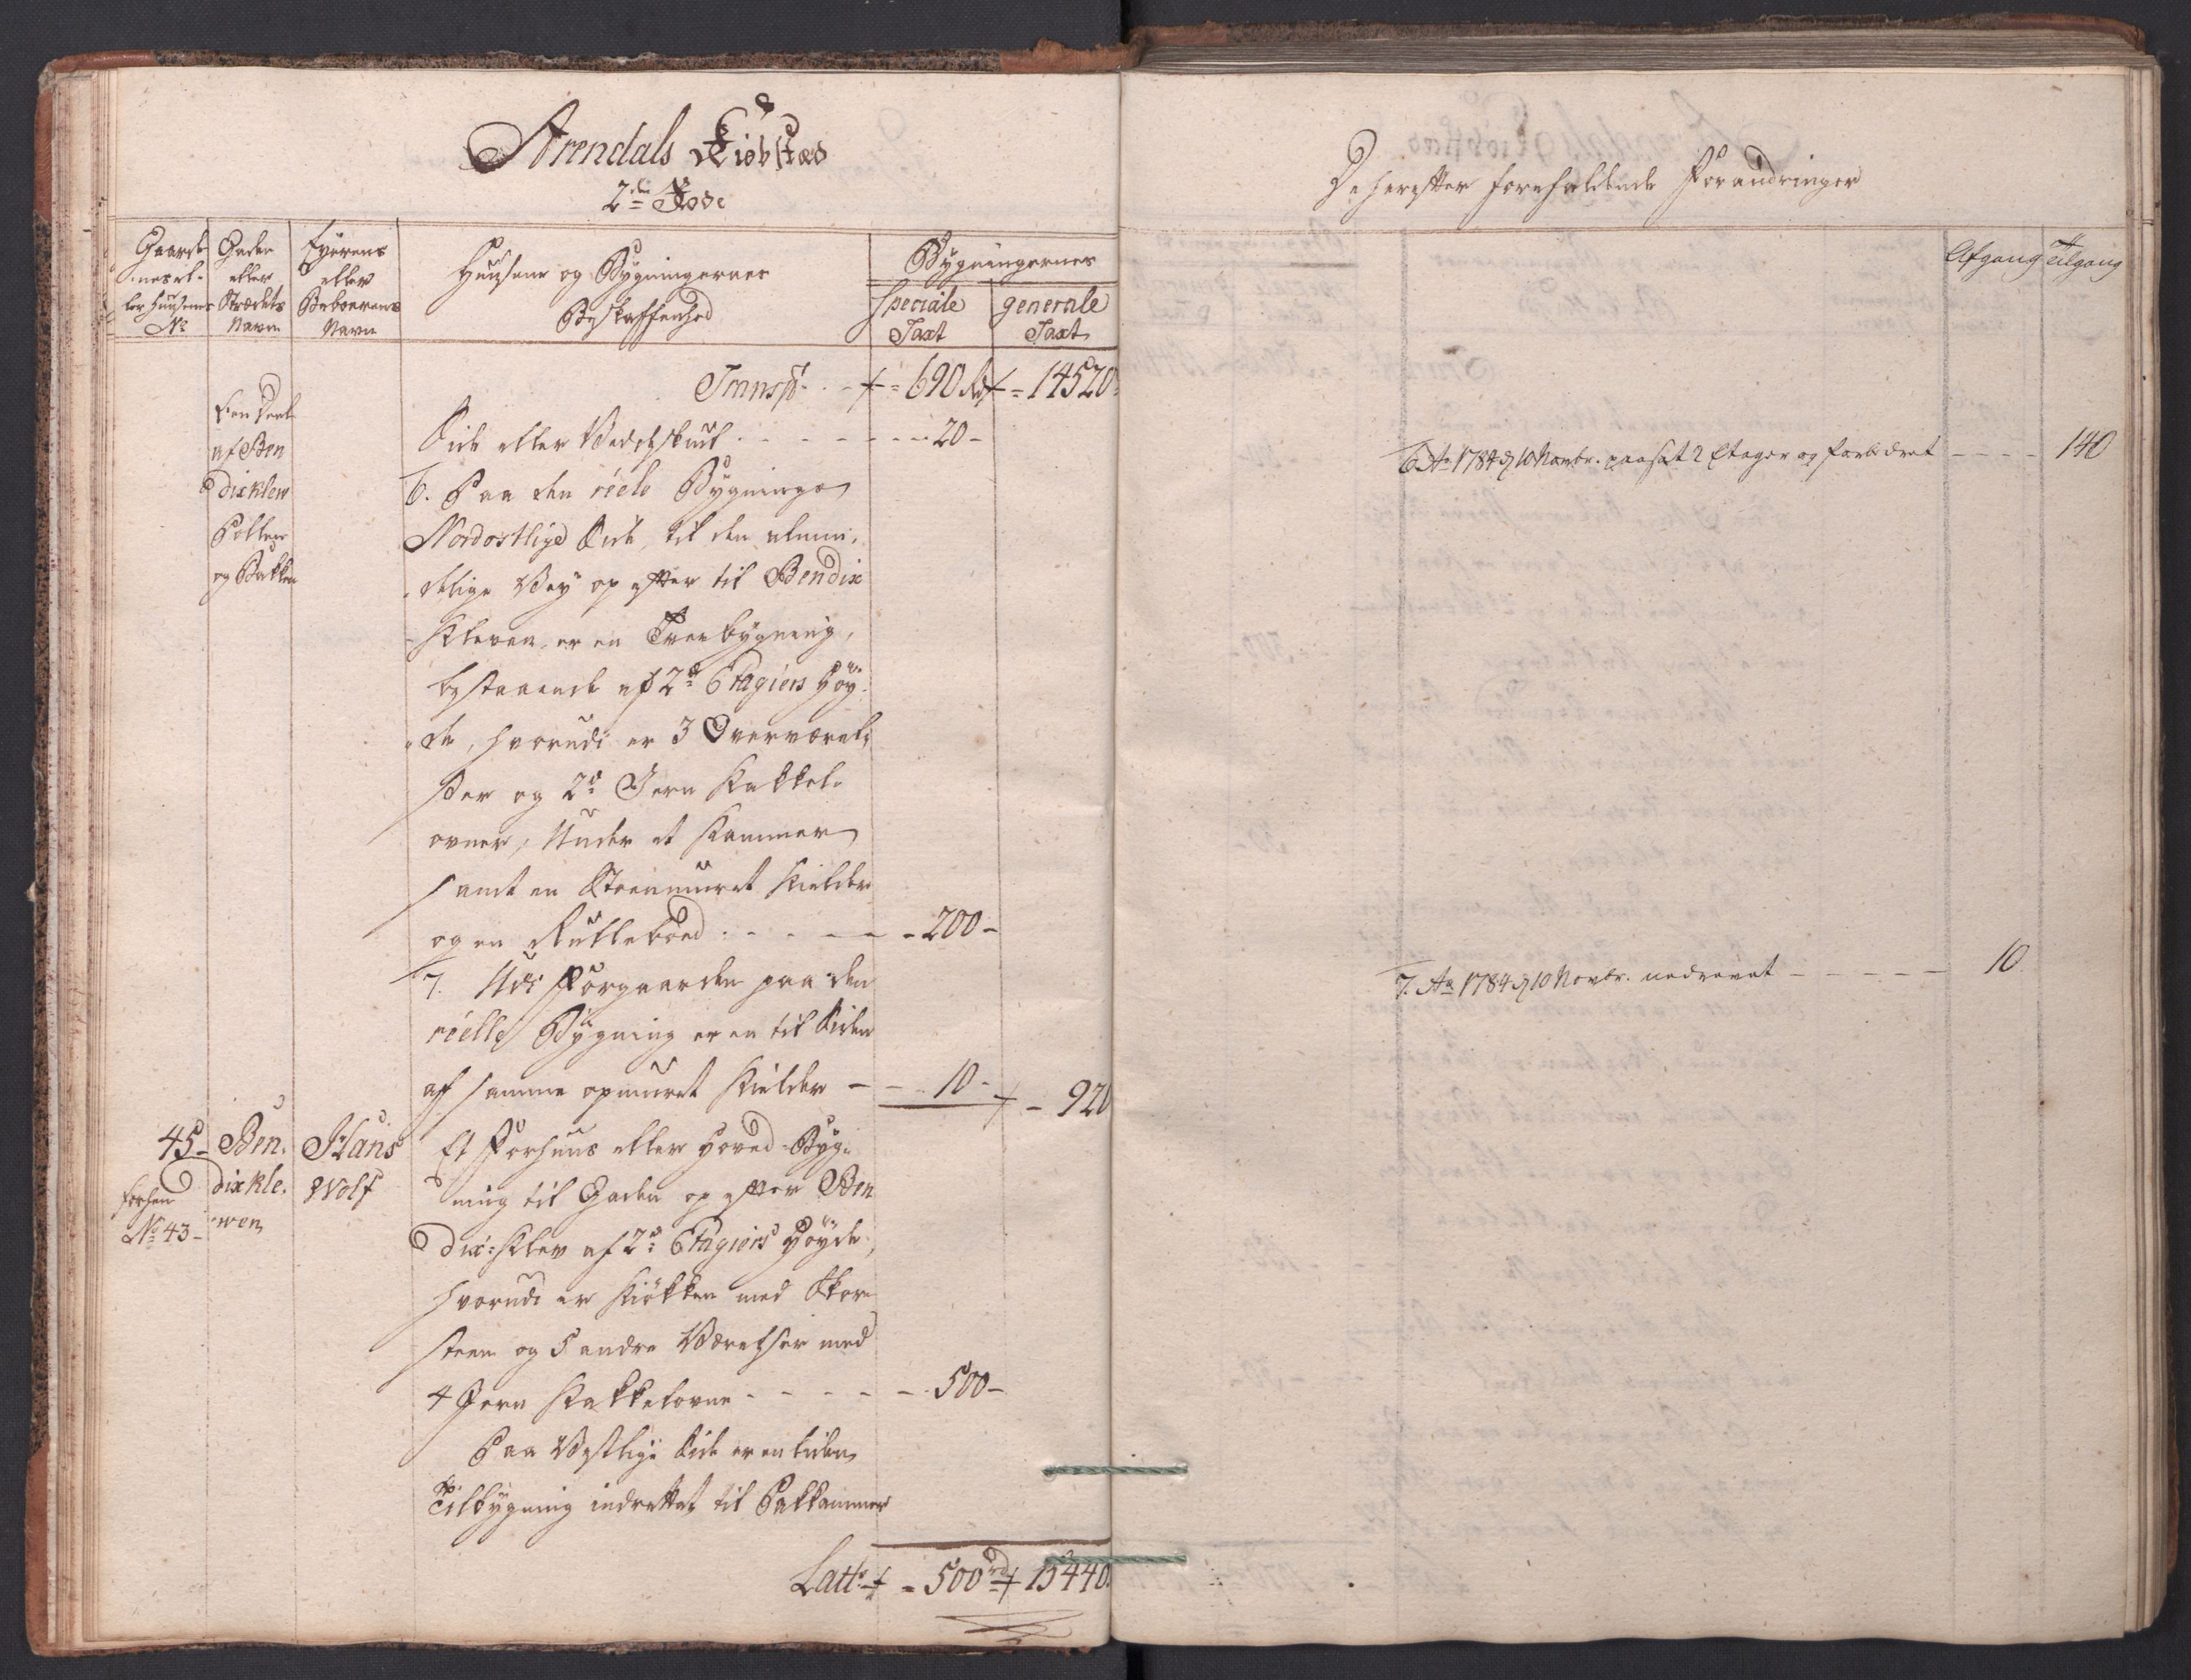 Arendals Kiöbstæd
2den Rode
Gaarde-
nes el-
ler Huusenes
No
Gaden
eller
Strædets
Navn
Eyerens
eller
Beboerens
Navn
Huusene og Bygningernes
Beskaffenhed
Bygningernes
speciale
Taxt
generale
Taxt
Transpt. - - 690 Rd - 14520
Een Deel
af Ben
dixklew
Pollen
og Bakken
Side eller Vedeskuul - - - - 20 -
6. Paa den réele Bygnings
Nordostlige Side, til den almin-
delige Vey op efter til Bendix
Kleven, er en Træe bygning,
bestaaende af 2de Etagiers Höy-
de, hvorudi er 3 Overværel-
ser og 2de Jern Kakkel-
ovner, Under et Kammer
samt en Steenmuret Kielder
og en Rullebod - - - - 200 -
7. Udi Forgaarden paa den
réelle Bygning er en til Siden
af samme opmuret Kielder - - 10 - - 920
45 -
forhen
No 43 -
Ben-
dixkle-
wen
Hans
Wolf
Et Forhuus eller Hoved-Byg-
ning til Gaden op efter Ben
dix-Klev af 2de Etagiers Höyde,
hvorudi er Kiökken med Skor-
steen og 5 andre Værelser med
4 Jern Kakkelovne - - - - - 500 -
Paa Vestlige Side er en liden
Tilbygning indrettet til Pakkammer
Latt. - 500 rd 15440.
De herefter forefaldende Forandringer
Afgang Tilgang
6. Ao 1784 d 10 Novbr. paasat 2 Etager og forbedret - - - - 140
7. Ao 1784 d 10 Novbr. nedrevet - - - - - 10